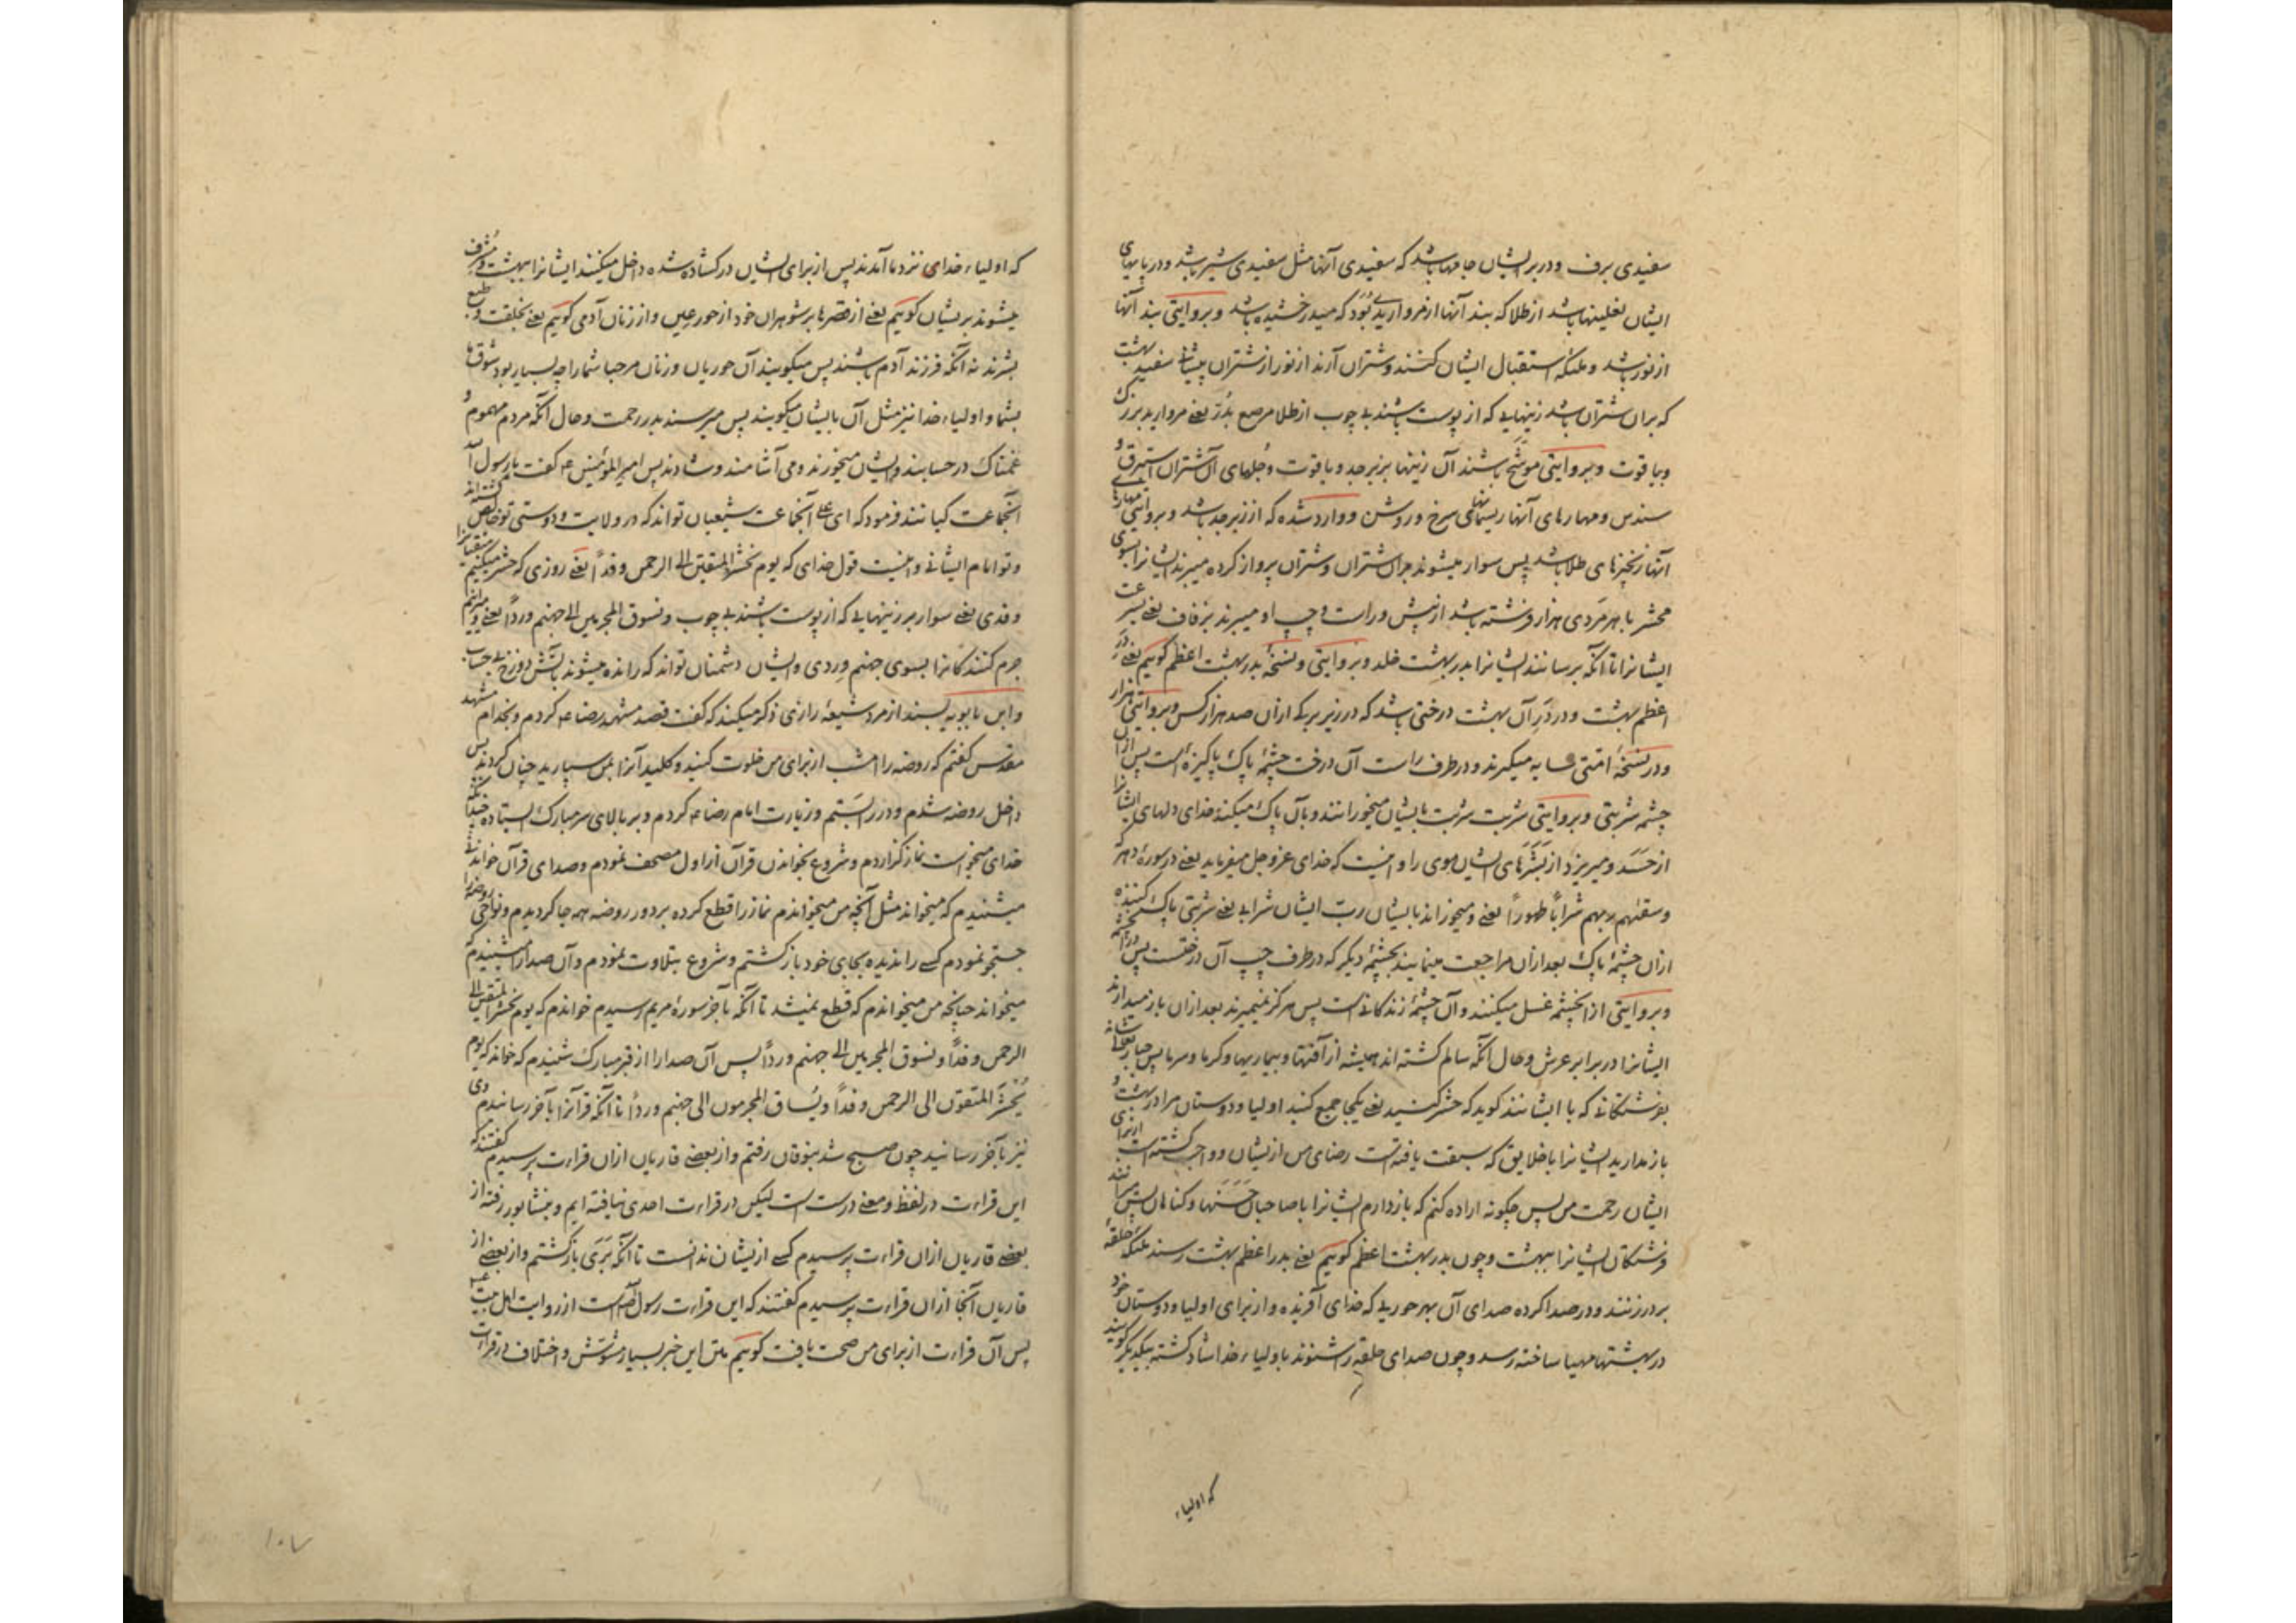 سفیدی برف و در بر ایشان جامها باشد که سفیدی آنها مثل سفیدی شیر باشد و در پایهای
ایشان نعلینها باشد از طلا که بند آنها از مروارید بود که میدرخشیده باشد و بروایتی بند آنها
از نور باشد و ملئکه استقبال ایشان کنند و شتران آرند از نور از شتران پیشانی سفید بهشت
که بران شتران باشد زینهایی که از پوست باشند بی چوب از طلا مرصع بدُرّ یعنی مروارید بزرک
و یاقوت و بروایتی موشّح باشند آن زینها بزبرجد و یاقوت و جُلهای آن شتران استبرق و
سندس و مهارهای آنها ریسمانهای سرخ و روشن و وارد شده که از زبرجد باشد و بروایتی مهارهای
آنها زنجیرهای طلا باشد پس سوار میشوند بران شتران و شتران پرواز کرده میبرند ایشانرا بسوی
محشر با هر مَردی هزار فرشته باشد از پیش و راست و چپ او میبرند بزفاف یعنی بسرعت
ایشانرا تا آنکه برسانند ایشانرا بدر بهشت خلد و بروایتی و نسخهٔ بدر بهشت اعظم کوییم یعنی درِ
اعظم بهشت و در دَرِ آن بهشت درختی باشد که در زیر برکی ازان صد هزار کس و بروایتی هزار
و در نسخهٔ امّتی سایه میکیرند و در طرف راست آن درخت چشمهٔ پاک پاکیزه است پس ازان
چشمه شربتی و بروایتی شربت شربت بایشان میخورانند و بآن پاک میکند خدای دلهای ایشانرا
از حَسَد و میریزد از بَشَرَهای ایشان موی را و اینست که خدای عزوجل میفرماید یعنی در سورهٔ دهر که
وسقیهم ربهم شراباً طهوراً یعنی و میخوراند بایشان ربّ ایشان شرابی یعنی شربتی پاک کننده
ازان چشمهٔ پاک بعد ازان مراجعت مینمایند بچشمهٔ دیکر که در طرف چپ آن درختست پس در آن چشمه
و بروایتی از آن چشمه غسل میکنند و آن چشمهٔ زندکانی است پس هرکز نمیمیرند بعد ازان باز میدارند
ایشانرا در برابر عرش و حال آنکه سالم کشته اند همیشه از آفتها و بیماریها و کرما و سرما پس جبار تعالی شأنه
بفرشتکانی که با ایشانند کوید که حشر کنید یعنی یکجا جمع کنید اولیا و دوستان مرا در بهشت و
باز مدارید ایشانرا با خلایق که سبقت یافته است رضای من از ایشان و واجب کشته است از برای
ایشان رحمت من پس چکونه اراده کنم که باز دارم ایشانرا با صاحبان حَسَنَها و کناهان پس میرانند
فرشتکان ایشانرا ببهشت و چون بدر بهشت اعظم کوییم یعنی بدر اعظم بهشت رسند ملئکه حلقهٔ
بر در زنند و در صدا کرده صدای آن بهر حوریی که خدای آفریده و از برای اولیا و دوستان خود
در بهشتها مهیا ساخته رسد و چون صدای حلقهٔ در شنوند باولیاء خدا شاد کشته بیکدیکر کویند
که اولیاء
که اولیاء خدای نزد ما آمدند پس از برای ایشان در کشاده شده داخل میکنند ایشانرا ببهشت و مُشرف
میشوند بر ایشان کوییم یعنی از قصرها بر شوهران خود از حور عین و از زنان آدمی کوییم یعنی بخلقت و طبع
بشرند نه آنکه فرزند آدم باشند پس میکویند آن حوریان و زنان مرحبا شما را چه بسیار بود شوق ما
بشما و اولیاء خدا نیز مثل آن بایشان میکویند پس میرسند بدر رحمت و حال آنکه مردم مهموم و
غمناک در حسابند و ایشان میخورند و می آشامند و شادند پس امیرالمؤمنین ع کفت یا رسول الله
آنجماعت کیانند فرمود که ای علی آنجماعت شیعیان تو اند که در ولایت و دوستی تو خالص کشته اند
و تو امام ایشانی و اینست قول خدای که یوم نحشر المتقین الی الرحمن وفداً یعنی روزی که حشر میکنیم متقیانرا
وفدی یعنی سوار بر زینهایی که از پوست باشند بی چوب و نسوق المجرمین الی جهنم ورداً یعنی و میرانیم
جرم کنندکانرا بسوی جهنم وِردی و ایشان دشمنان تو اند که رانده میشوند بآتش دوزخ بی حساب
و ابن بابویه بسند از مرد شیعهٔ رازی ذکر میکند که کفت قصد مشهد رضا ع کردم و بخدام مشهد
مقدس کفتم که روضه را امشب از برای من خلوت کنید و کلید آنرا بمن سپارید چنان کردند پس
داخل روضه شدم و در را بستم و زیارت امام رضا ع کردم و بر بالای سر مبارک ایستاده چندانکه
خدای میخواست نماز کزاردم و شروع بخواندن قرآن از اول مصحف نمودم و صدای قرآن خواندنی
میشنیدم که میخواند مثل آنچه من میخواندم نماز را قطع کرده بر دور روضه همه جا کردیدم و نواحی روضه را
جستجو نمودم کسی را ندیده بجای خود باز کشتم و شروع بتلاوت نمودم و آن صدا را میشنیدم که
میخواند چنانچه من میخواندم که قطع نمیشد تا آنکه بآخر سورهٔ مریم رسیدم خواندم که یوم نحشر المتقین الی
الرحمن وفداً و نسوق المجرمین الی جهنم ورداً پس آن صدا را از قبر مبارک شنیدم که خواند که یوم
یُحشَرُ المتقون الی الرحمن وفداً و یُساق المجرمون الی جهنم ورداً تا آنکه قرآنرا بآخر رسانیدم و وی
نیز بآخر رسانید چون صبح شد بنوقان رفتم و از بعضی قاریان ازان قراءت پرسیدم کفتند که
این قراءت در لفظ و معنی درست است لیکن در قراءت احدی نیافته ایم و بنشابور رفته از
بعضی قاریان ازان قراءت پرسیدم کسی از ایشان ندانست تا آنکه برَی باز کشتم و از بعضی از
قاریان آنجا ازان قراءت پرسیدم کفتند که این قراءت رسول الله است از روایت اهل بیت
پس آن قراءت از برای من صحت یافت کوییم متن این خبر بسیار مشوّش و اختلاف در قراءت
۱۰۷